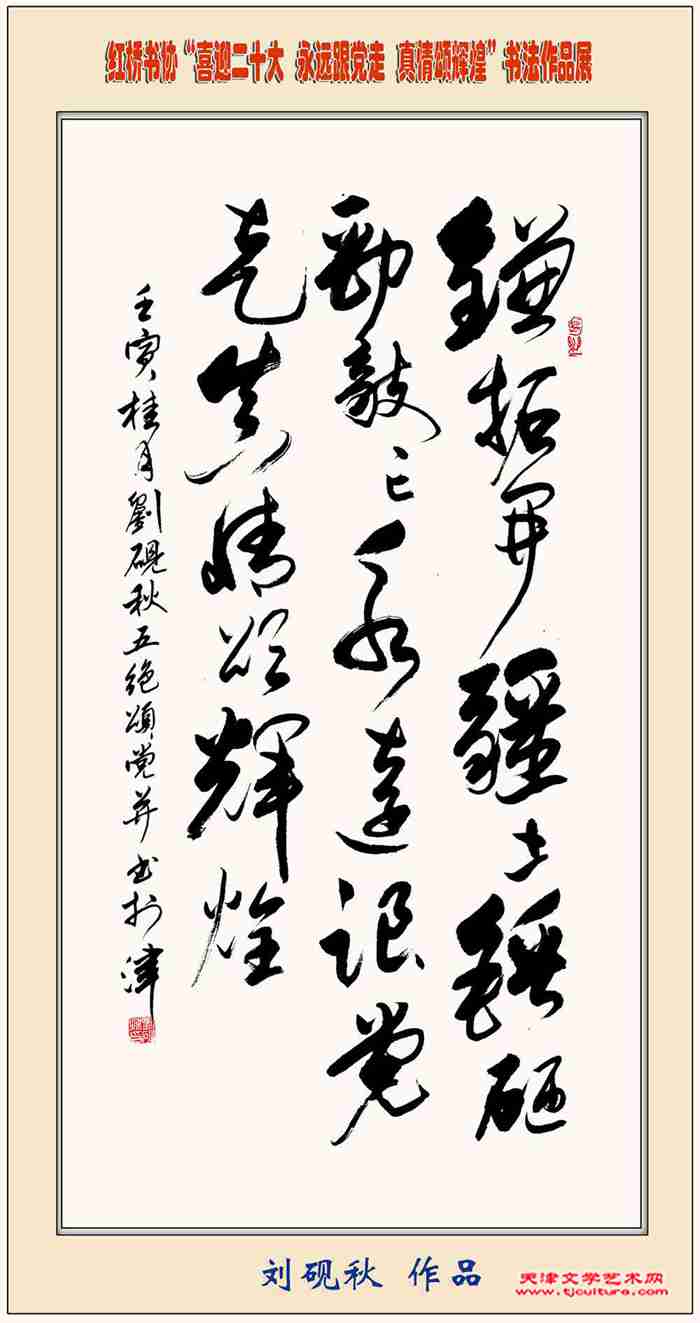 红桥书协“喜迎二十大 永远跟党走 真情颂辉煌”书法作品展
鐮拓开疆土锤砸
勁敲亡永遠跟党
走真情颂輝煌
壬寅桂月劉硯秋五绝頌党并书於津
刘砚秋 作品
天津文学艺术网
www.tjculture.com